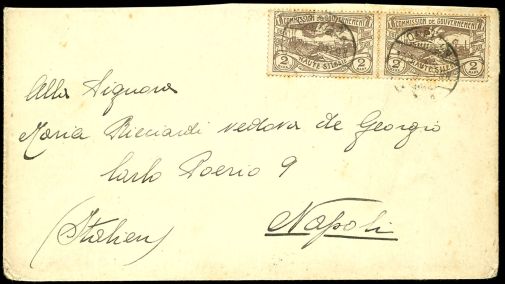 COMMISSION DE GOUVERNEMENT COMMISSION DE GOUVERNEMENT
2 HAUTE SILÉSIE 2 2 HAUTE SILÉSIE 2
Alla Signora
Maria Ricciardi vedova de Georgio
Carlo Poerio 9
(Italien) Napoli